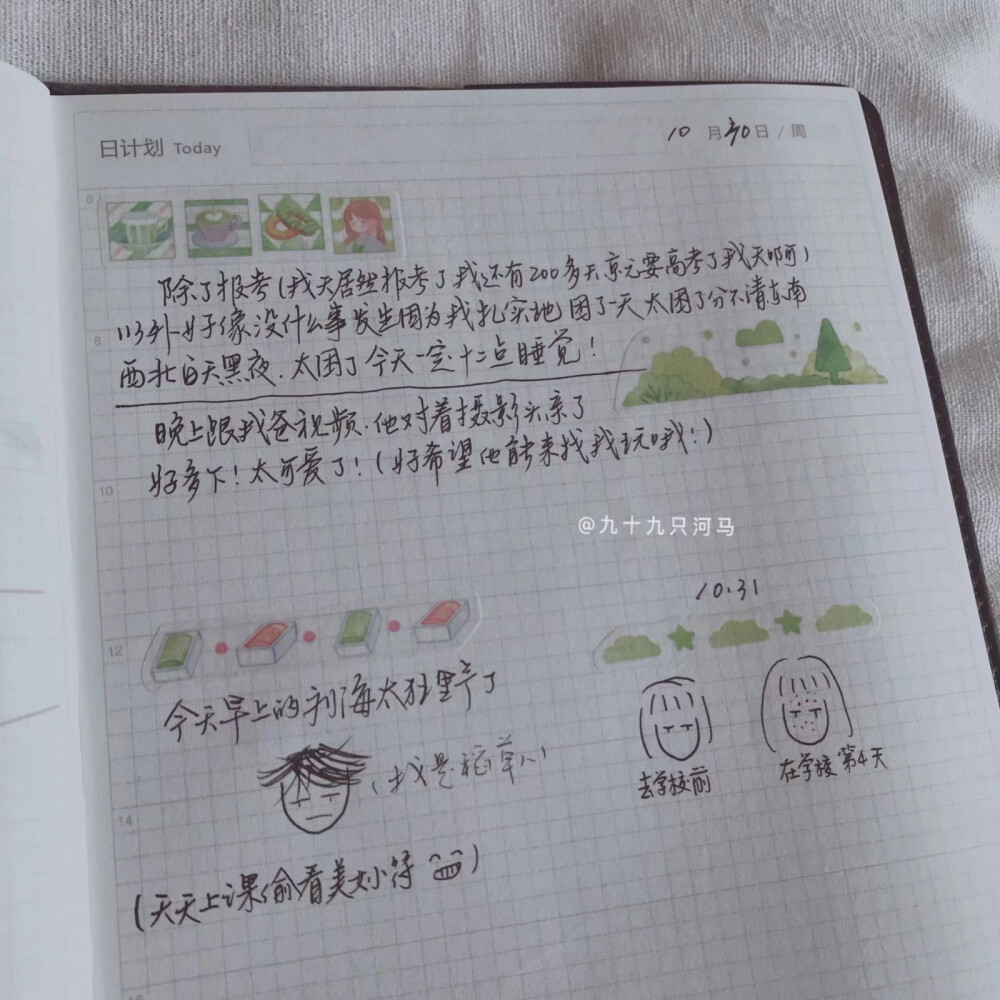 日计划 Today
10月30日/周
6
除了报考(我天居然报考了我还有200多天就要高考了我天啊)
以外好像没什么事发生因为我扎实地困了一天 太困了分不清东南
8
西北白天黑夜.太困了今天一定十二点睡觉!
晚上跟我爸视频.他对着摄影头亲了
好多下!太可爱了!(好希望他能来找我玩哦!)
10
@九十九只河马
10.31
12
今天早上的刘海太狂野了
(我是稻草人)
去学校前
在学校第4天
14
(天天上课偷看美女小